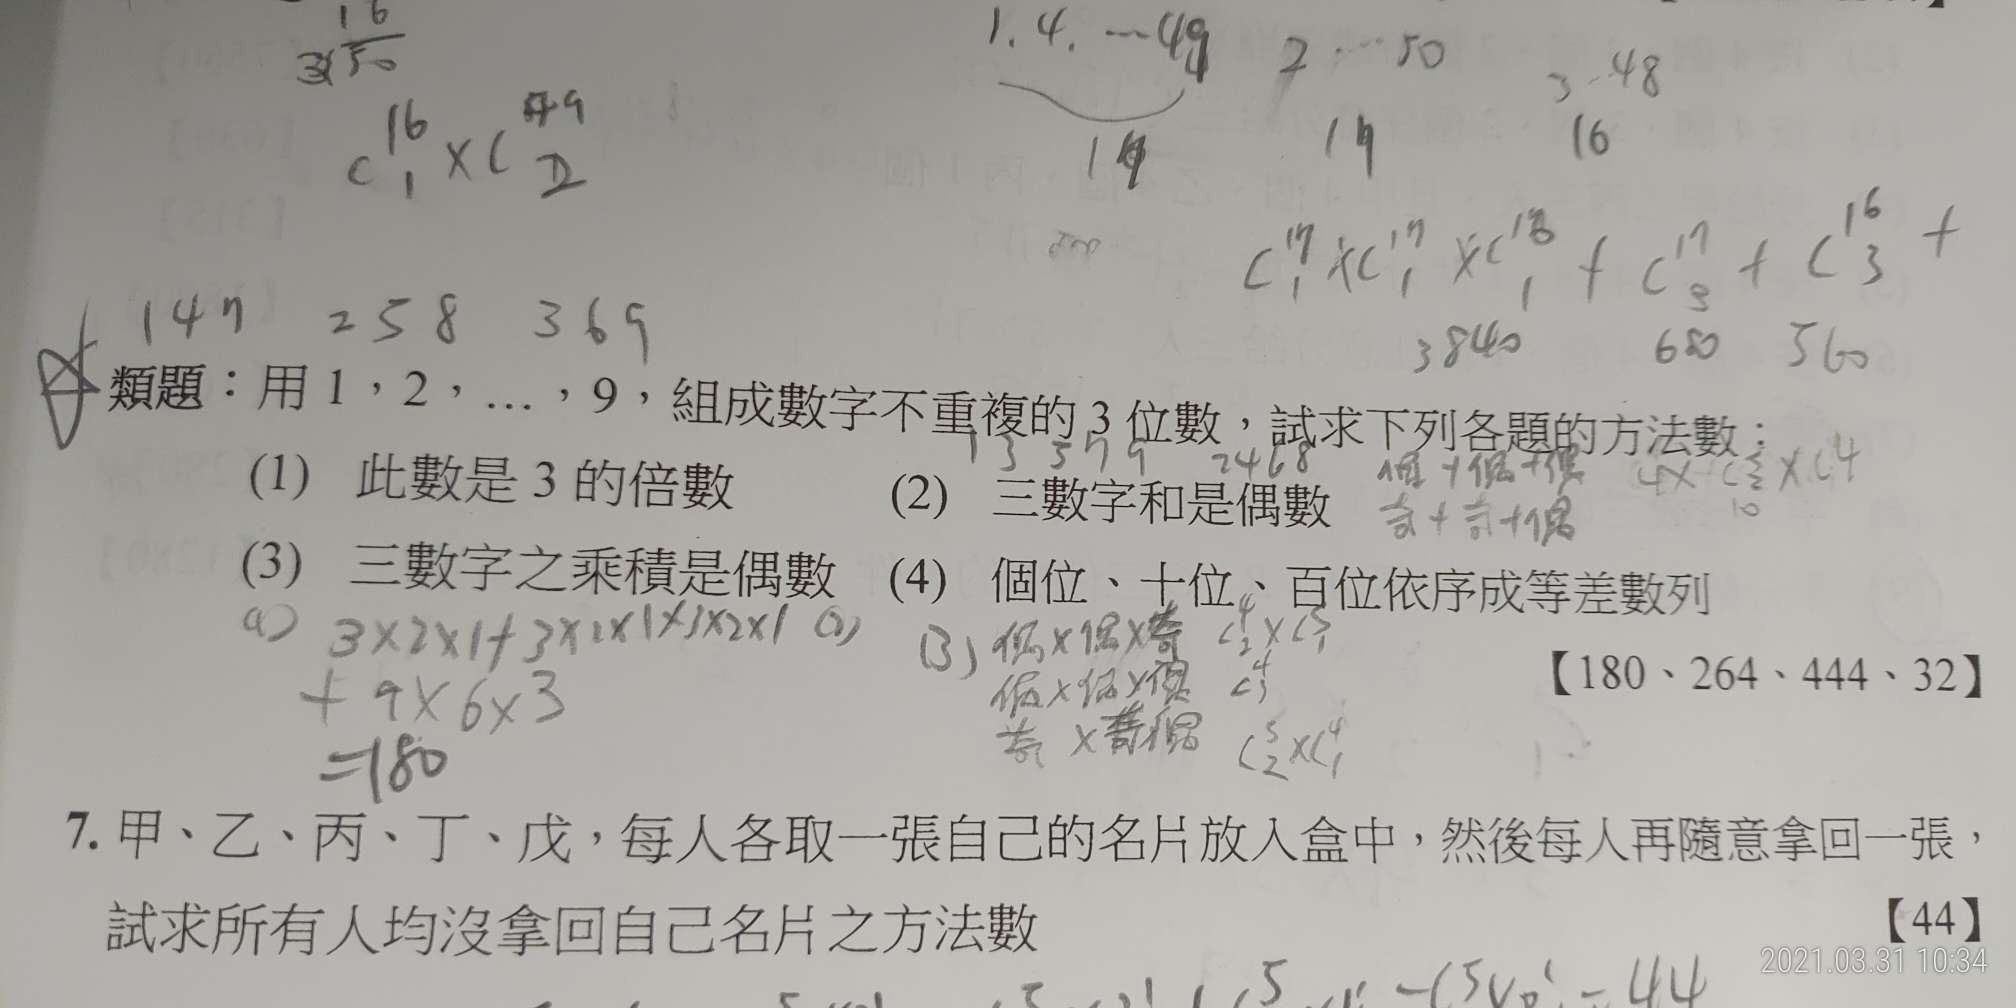 16
3 50
C 16 1 × C 49 2
1. 4. … 49
2 … 50
3 … 48
17
17
16
C 17 1 × C 17 1 × C 16 1 + C 17 3 + C 16 3 +
3840 680 560
1 4 7 2 5 8 3 6 9
類題：用 1，2，…，9，組成數字不重複的 3 位數，試求下列各題的方法數：
1 3 5 7 9 2 4 6 8
偶+偶+偶
(1) 此數是 3 的倍數 (2) 三數字和是偶數
奇+奇+偶
(3) 三數字之乘積是偶數 (4) 個位、十位、百位依序成等差數列
(1) 3×2×1+3×2×1×3×2×1
+ 9×6×3
=180
(3) 偶×偶×奇 C 4 2 × C 5 1
偶×偶×偶 C 4 3
奇×奇偶 C 5 2 × C 4 1
【180、264、444、32】
7. 甲、乙、丙、丁、戊，每人各取一張自己的名片放入盒中，然後每人再隨意拿回一張，
試求所有人均沒拿回自己名片之方法數
【44】
2021.03.31 10:34
= 44